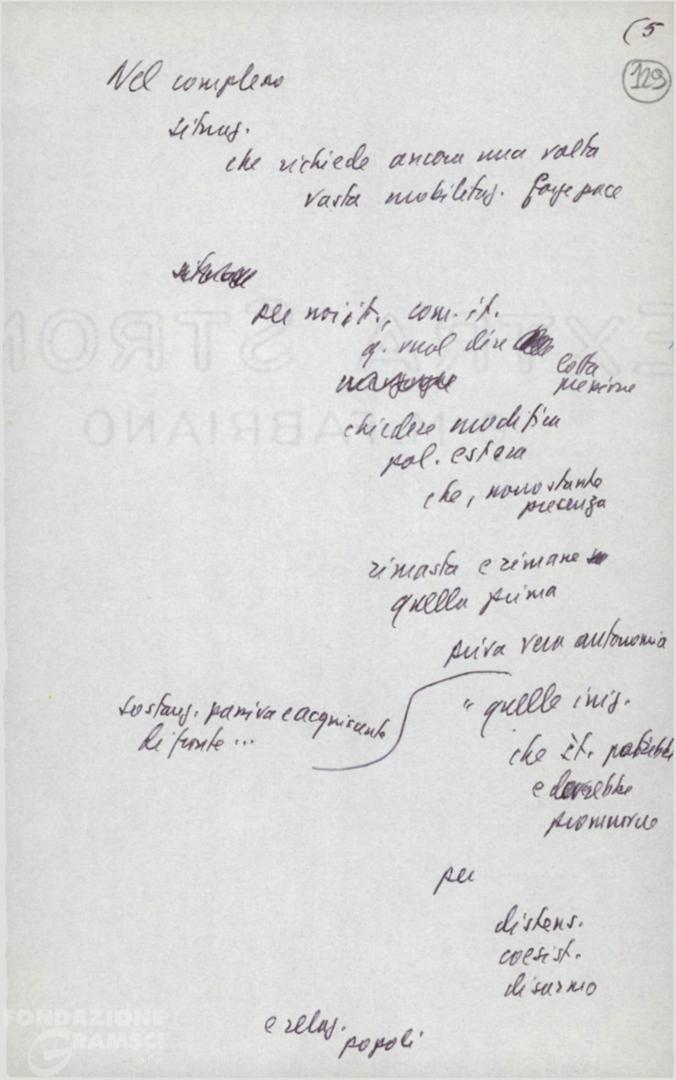 (5
129
Nel complesso
situaz.
che richiede ancora una volta
vasta mobilitaz. forze pace
per noi it., com. it.
q. vuol dire
lotta
pressione
chiedere modifica
pol. estera
che, nonostante
presenza
rimasta e rimane
quella prima
priva vera autonomia
sostanz. passiva e acquiescente
di fronte ...
" quelle iniz.
che It. potrebbe
e dovrebbe
promuovere
per
distens.
coesist.
disarmo
e relaz.
popoli
EXTRA STRO
FABRIANO
FONDAZIONE
GRAMSCI